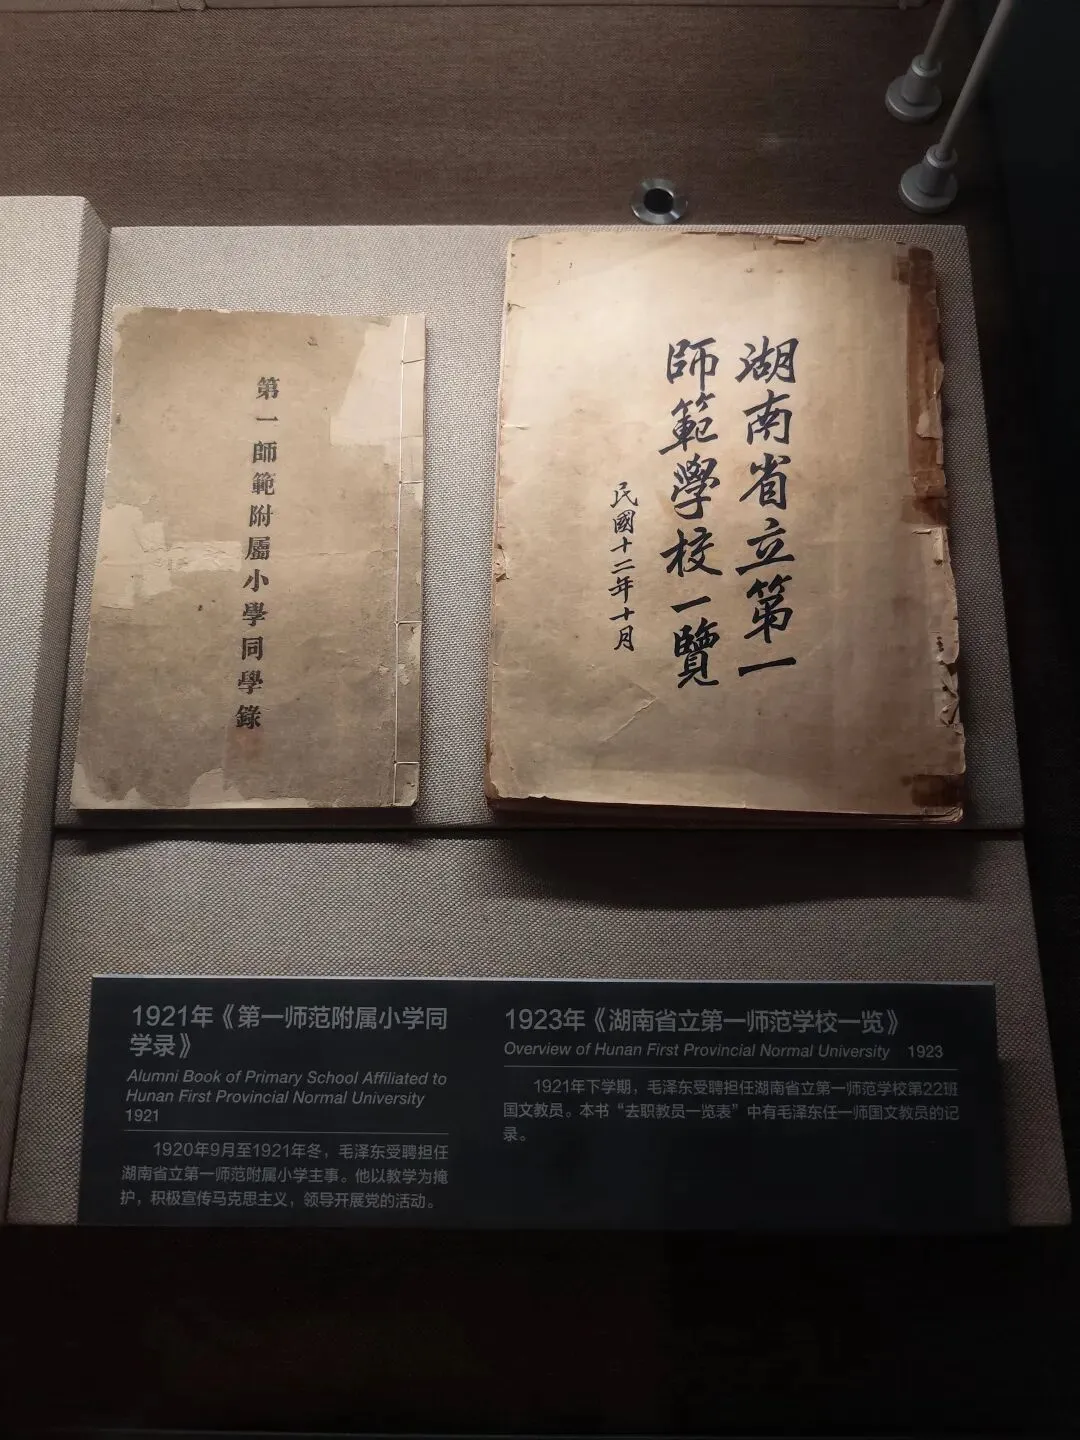 第一師範附屬小學同學錄
湖南省立第一
師範學校一覽
民國十二年十月
1921年《第一师范附属小学同
学录》
Alumni Book of Primary School Affiliated to
Hunan First Provincial Normal University
1921
1920年9月至1921年冬，毛泽东受聘担任
湖南省立第一师范附属小学主事。他以教学为掩
护，积极宣传马克思主义，领导开展党的活动。
1923年《湖南省立第一师范学校一览》
Overview of Hunan First Provincial Normal University 1923
1921年下学期，毛泽东受聘担任湖南省立第一师范学校第22班
国文教员。本书“去职教员一览表”中有毛泽东任一师国文教员的记
录。